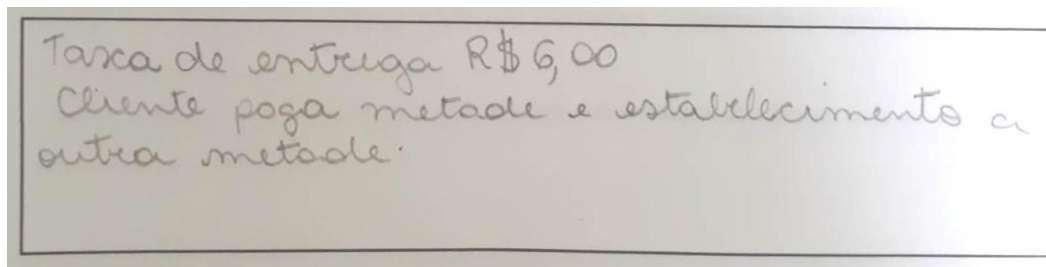 Taxa de entrega R$ 6,00
Cliente paga metade e estabelecimento a
outra metade.